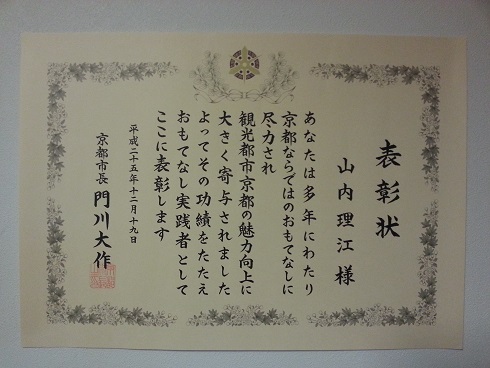 表彰状
山内理江 様
あなたは多年にわたり
京都ならではのおもてなしに
尽力され
観光都市京都の魅力向上に
大きく寄与されました
よってその功績をたたえ
おもてなし実践者として
ここに表彰します
平成二十五年十二月十九日
京都市長 門川大作